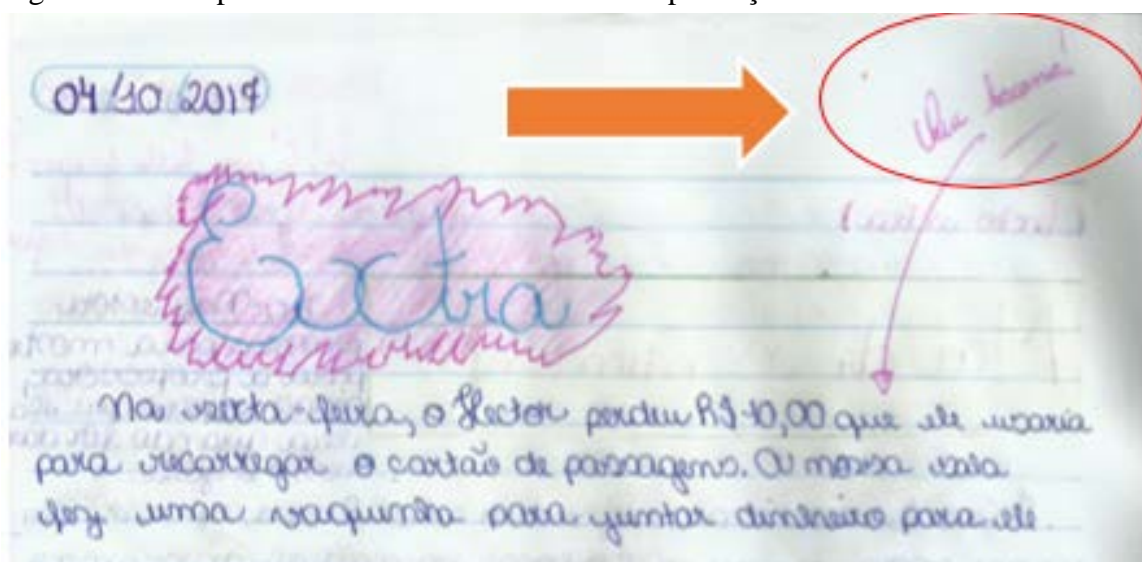 04/10/2017
Que bacana!
Extra
Na sexta-feira, o Hector perdeu R$ 10,00 que ele usaria
para recarregar o cartão de passagens. A nossa sala
fez uma vaquinha para juntar dinheiro para ele.